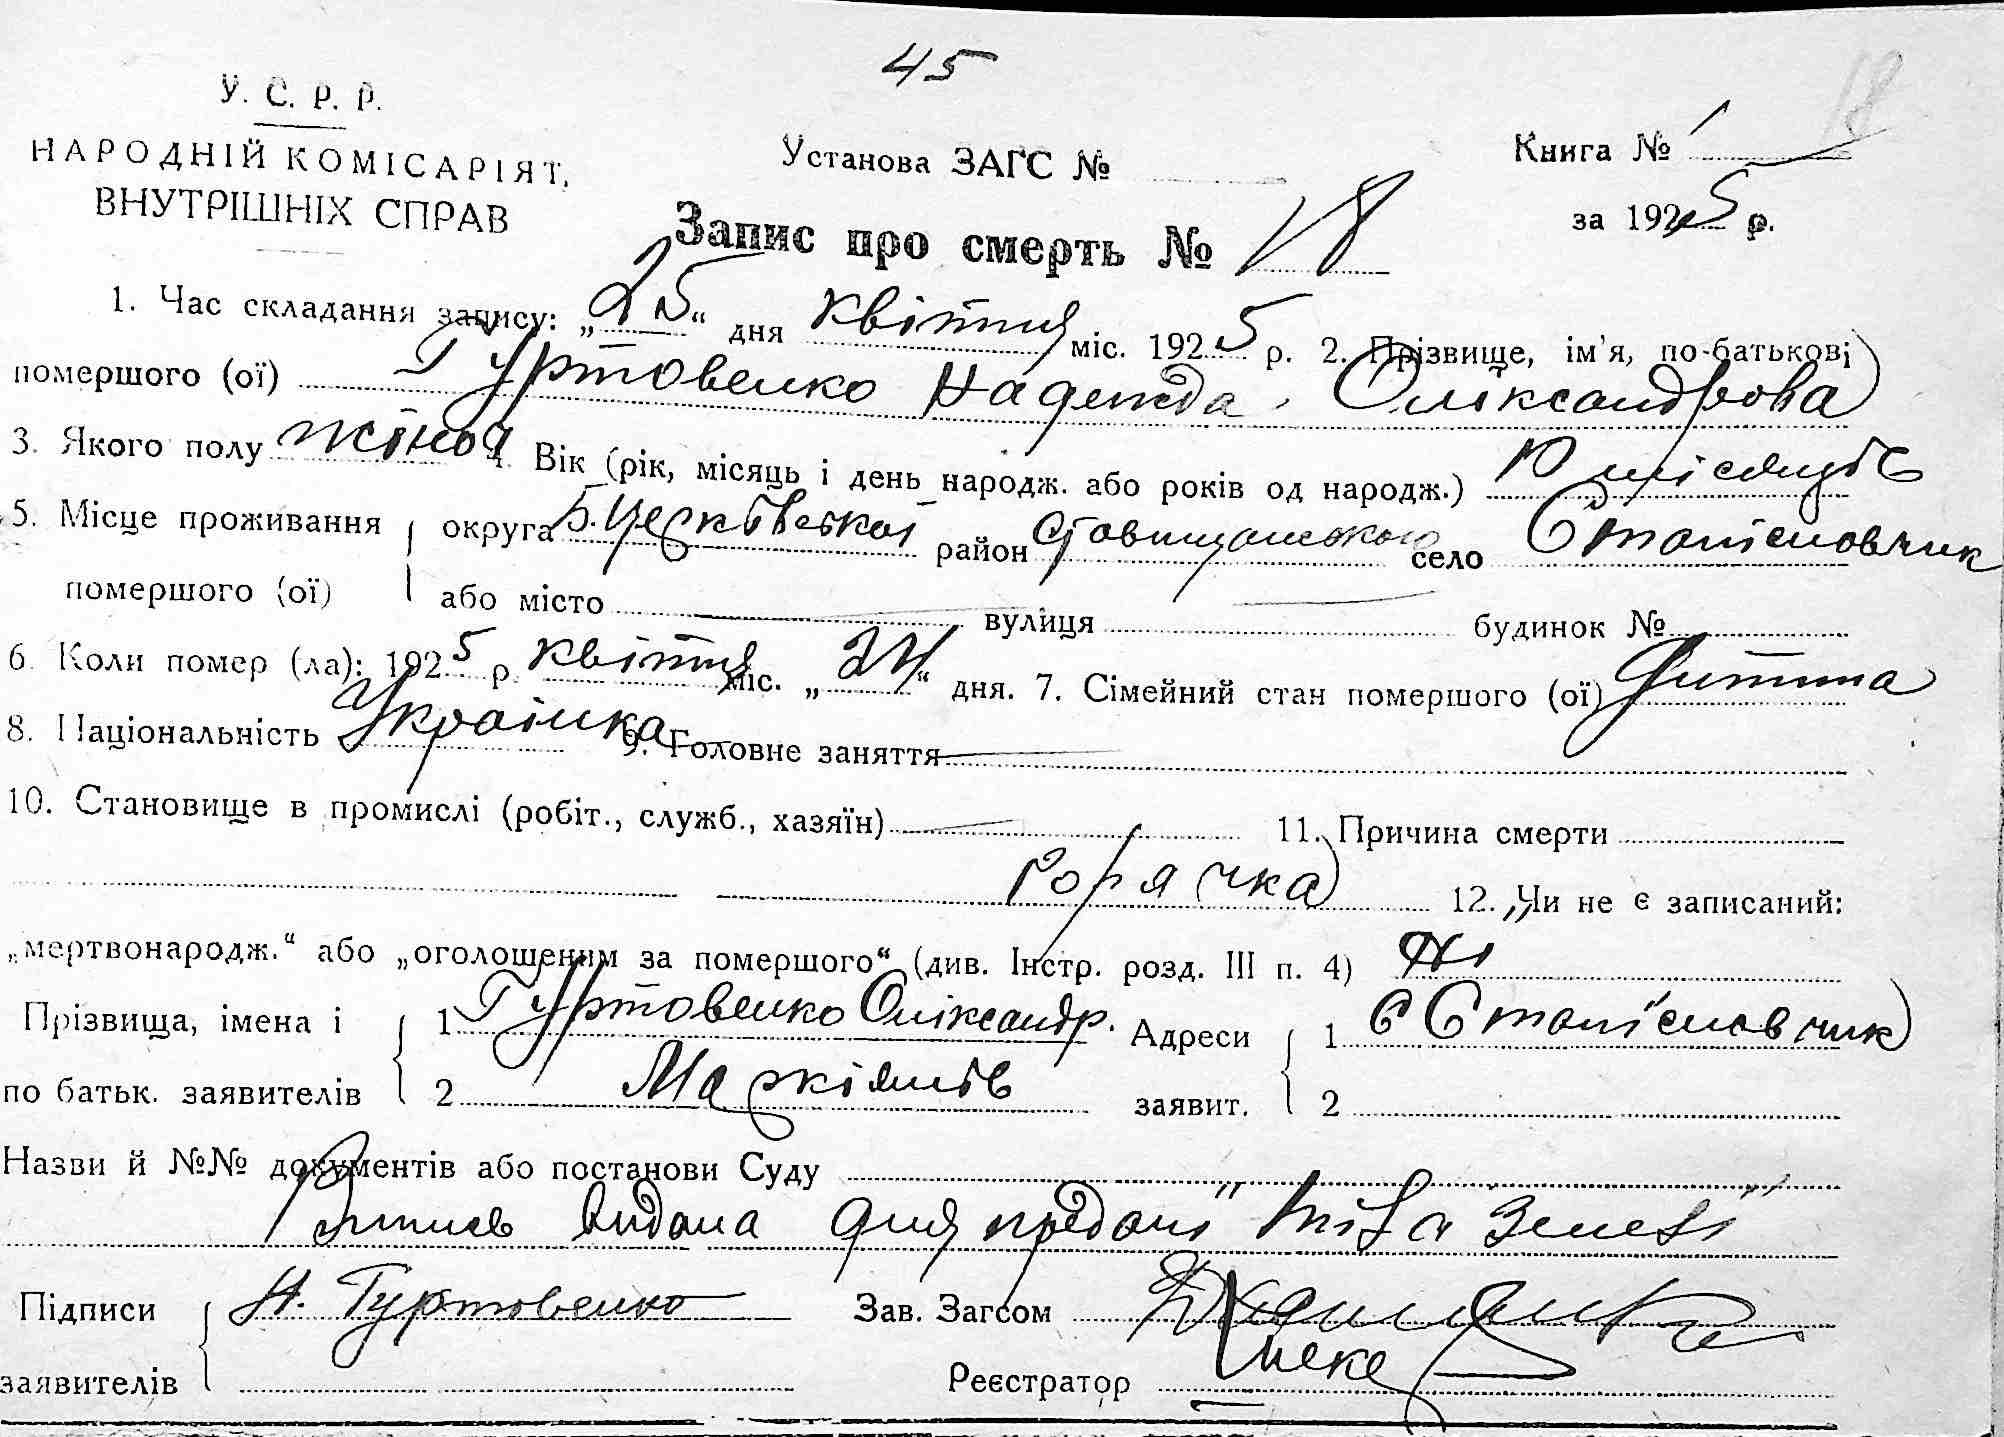 45
18
У. С. Р. Р.
НАРОДНІЙ КОМІСАРІЯТ,
ВНУТРІШНІХ СПРАВ
Установа ЗАГС №
Книга № 1
за 1925 р.
Запис про смерть № 18
1. Час складання запису: „25“ дня квітня міс. 1925 р. 2. Прізвище, ім'я, по-батькові
помершого (ої) Гуртовенко Надежда Оліксандрова
3. Якого полу жіноч 4. Вік (рік, місяць і день народж. або років од народж.) 10 місяців
5. Місце проживання помершого (ої) округа Б. Церківської район Ставищанського село Станіславчик
або місто вулиця будинок №
6. Коли помер (ла): 1925 р. квітня міс. „24“ дня. 7. Сімейний стан помершого (ої) Дитина
8. Національність Українка 9. Головне заняття
10. Становище в промислі (робіт., служб., хазяїн) 11. Причина смерти
горячка 12. Чи не є записаний:
„мертвонародж.“ або „оголошеним за помершого“ (див. Інстр. розд. III п. 4) Ні
Прізвища, імена і по батьк. заявителів 1 Гуртовенко Оліксандр. Адреси заявит. 1 с Станіславчик
2 Маркіянів 2
Назви й №№ документів або постанови Суду
видана для предані тіла землі
Підписи заявителів Гуртовенко Зав. Загсом
Реєстратор